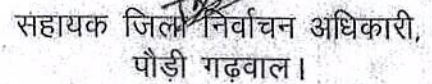 सहायक जिला निर्वाचन अधिकारी,
पौड़ी गढ़वाल।